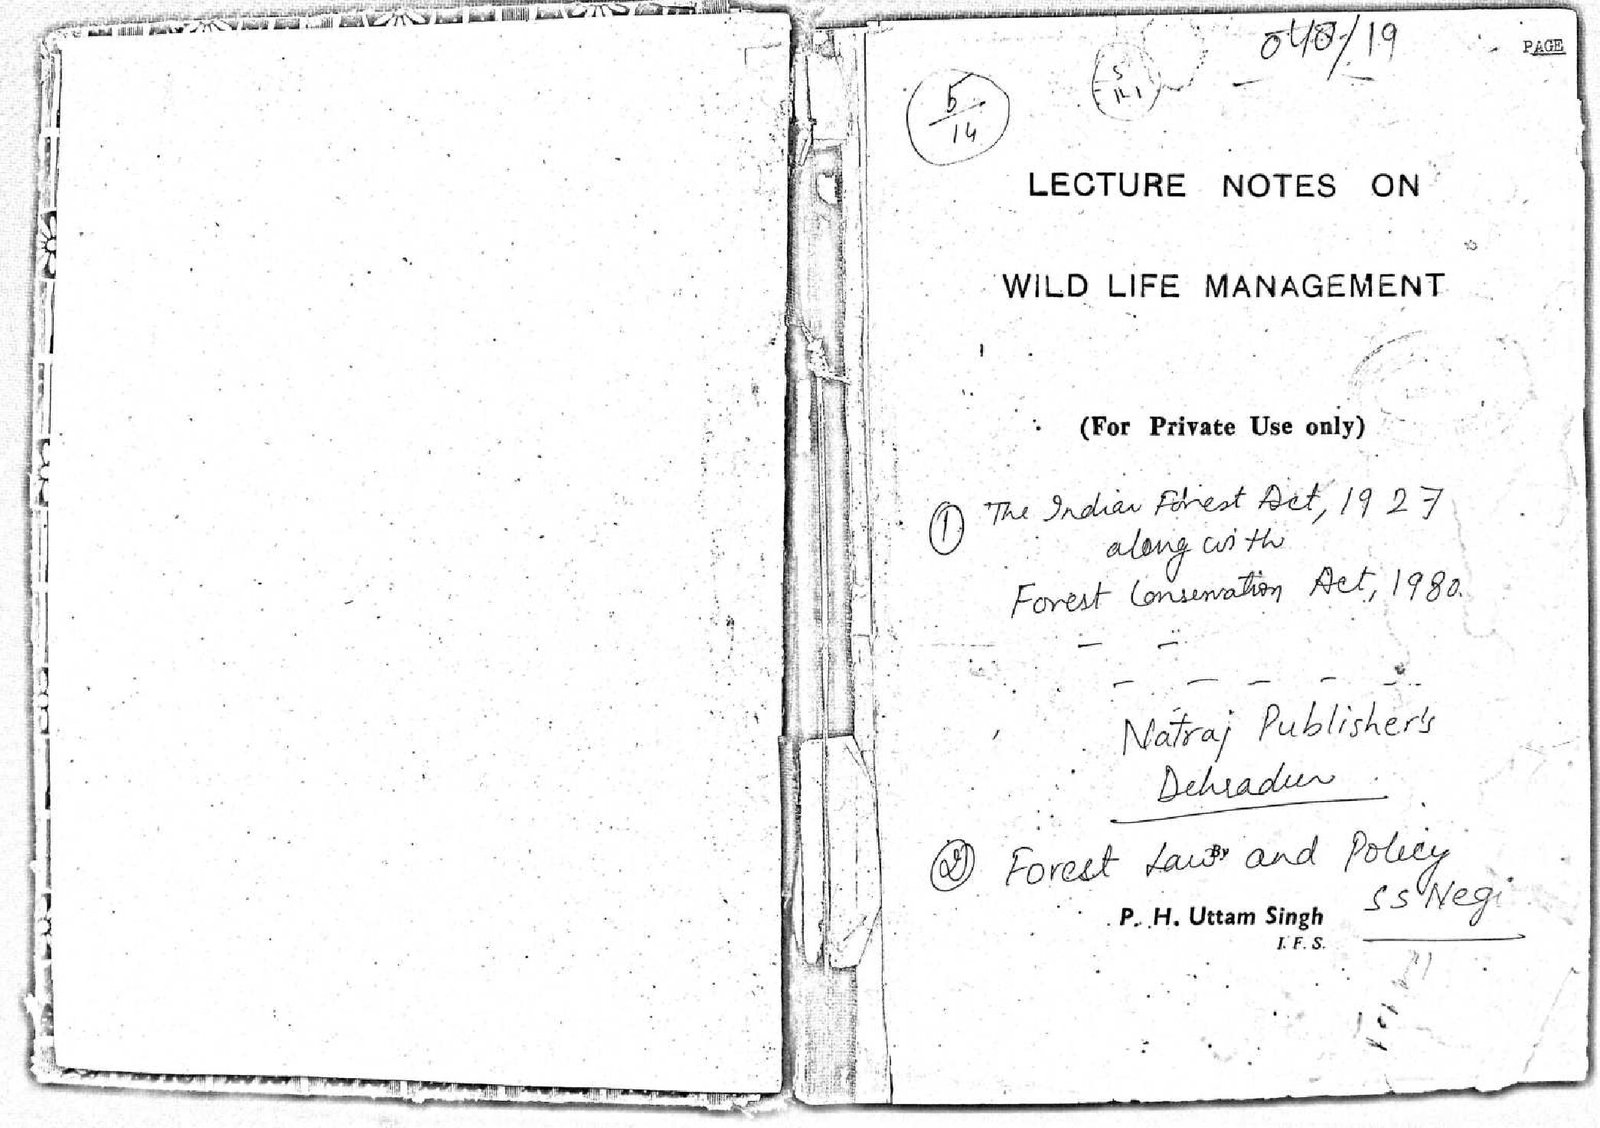 040/19
PAGE
5/14
LECTURE NOTES ON
WILD LIFE MANAGEMENT
(For Private Use only)
① The Indian Forest Act, 1927
along with
Forest Conservation Act, 1980.
Natraj Publisher's
Dehradun
② Forest Law and Policy
By
S S Negi
P. H. Uttam Singh
I. F. S.